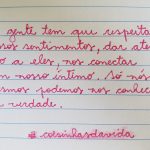 gente tem que respeitar
sos sentimentos, dar aten
o a eles, nos conectar
m nosso íntimo. Só nós
esmos podemos nos conhec
verdade.
# coisinhasdavida